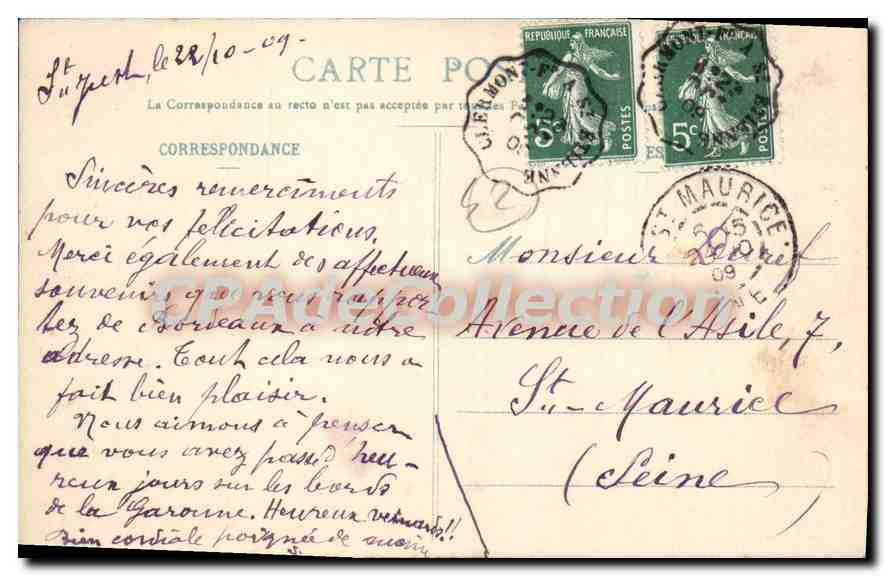 St Just, le 22/10-09-
CARTE POS
La Correspondance au recto n'est pas acceptée par tous les Pa
CORRESPONDANCE
Sincères remerciments
pour vos félicitations.
Merci également des affectueux
souvenirs que vous rappor-
tez de Bordeaux à notre
adresse. Tout cela nous a
fait bien plaisir.
Nous aimons à penser
que vous avez passé heu-
reux jours sur les bords
de la Garonne. Heureux veinards!!
Bien cordiale poignée de main
REPUBLIQUE FRANÇAISE
5c
POSTES
CLERMONT-Fd A ST ETIENNE
REPUBLIQUE FRANÇAISE
5c
POSTES
CLERMONT-Fd A ST ETIENNE
52
ST MAURICE
09
Monsieur
Avenue de l'Asile, 7,
St-Maurice
(Seine)
CPACollection